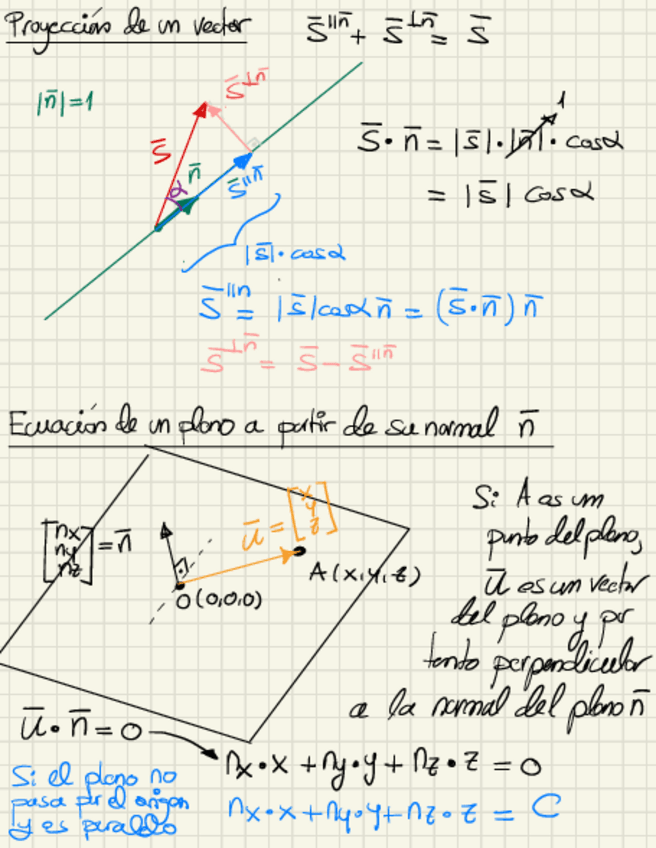 Proyección de un vector
S̄^∥n̄ + S̄^⊥n̄ = S̄
|n̄|=1
S̄^⊥n̄
S̄
α
n̄
S̄^∥n̄
|S̄|·cosα
S̄·n̄ = |S̄|·|n̄|·cosα
1
= |S̄| cosα
S̄^∥n = |S̄|cosα n̄ = (S̄·n̄) n̄
S̄^⊥n̄ = S̄ - S̄^∥n̄
Ecuación de un plano a partir de su normal n̄
[nx ny nz] = n̄
ū = [x y z]
O(0,0,0)
A(x,y,z)
Si A as um
punto del plano,
ū es un vector
del plano y por
tanto perpendicular
a la normal del plano n̄
ū·n̄=0
nx·x + ny·y + nz·z = 0
Si el plano no
pasa por el origen
y es paralelo
nx·x+ny·y+nz·z = C